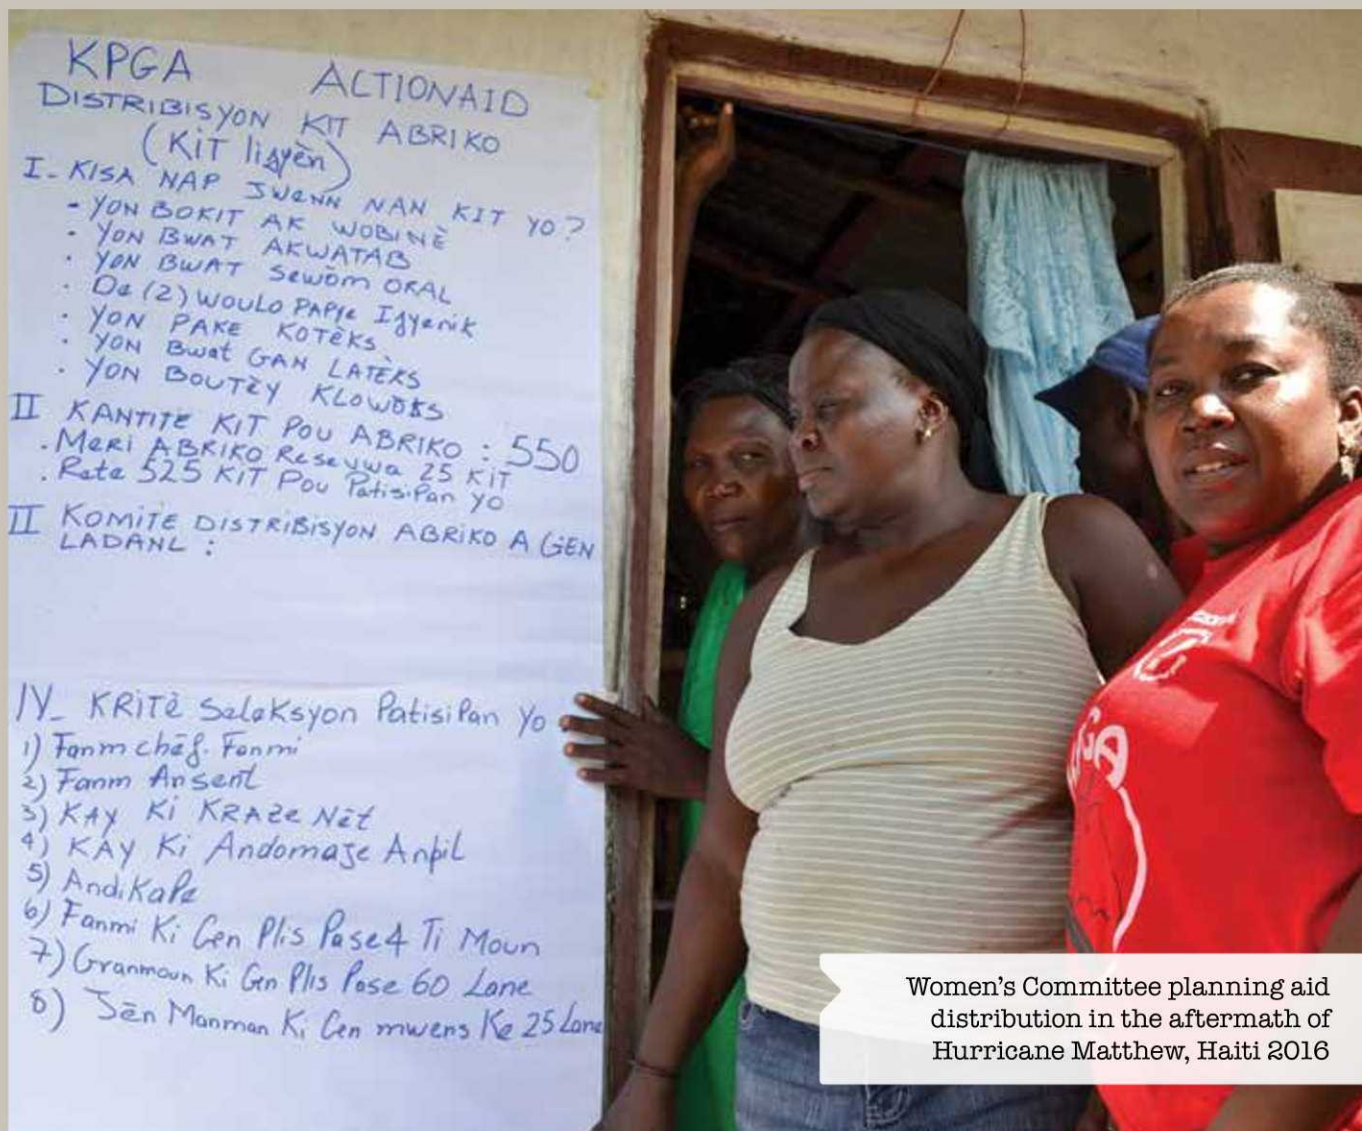 KPGA ACTIONAID
DISTRIBISYON KIT ABRIKO
(KIT Iijyèn)
I- KISA NAP JWENN NAN KIT YO?
- YON BOKIT AK WOBINÈ
- YON BWAT AKWATAB
· YON BWAT Sewòm ORAL
· De (2) WOULO PAPJe Ijyenik
· YON PAKE KOTÈKS
· YON Bwat GAN LATÈKS
· YON BOUTÈY KLOWÒKS
II KANTITE KIT POU ABRIKO : 550
. Meri ABRIKO Resevwa 25 KIT
. Rete 525 KIT Pou Patisipan yo
II KOMITE DISTRIBISYON ABRIKO A GEN
LADANL :
IV- KRITÈ Seleksyon Patisipan Yo
1) Fanm chèf. Fanmi
2) Fanm Ansent
3) KAY Ki KRAZe Nèt
4) KAY Ki Andomaje Anpil
5) AndiKape
6) Fanmi Ki Gen Plis Pase 4 Ti Moun
7) Granmoun Ki Gen Plis Pase 60 Lane
8) Jèn Manman Ki Gen mwens Ke 25 Lane
GA
Women's Committee planning aid
distribution in the aftermath of
Hurricane Matthew, Haiti 2016